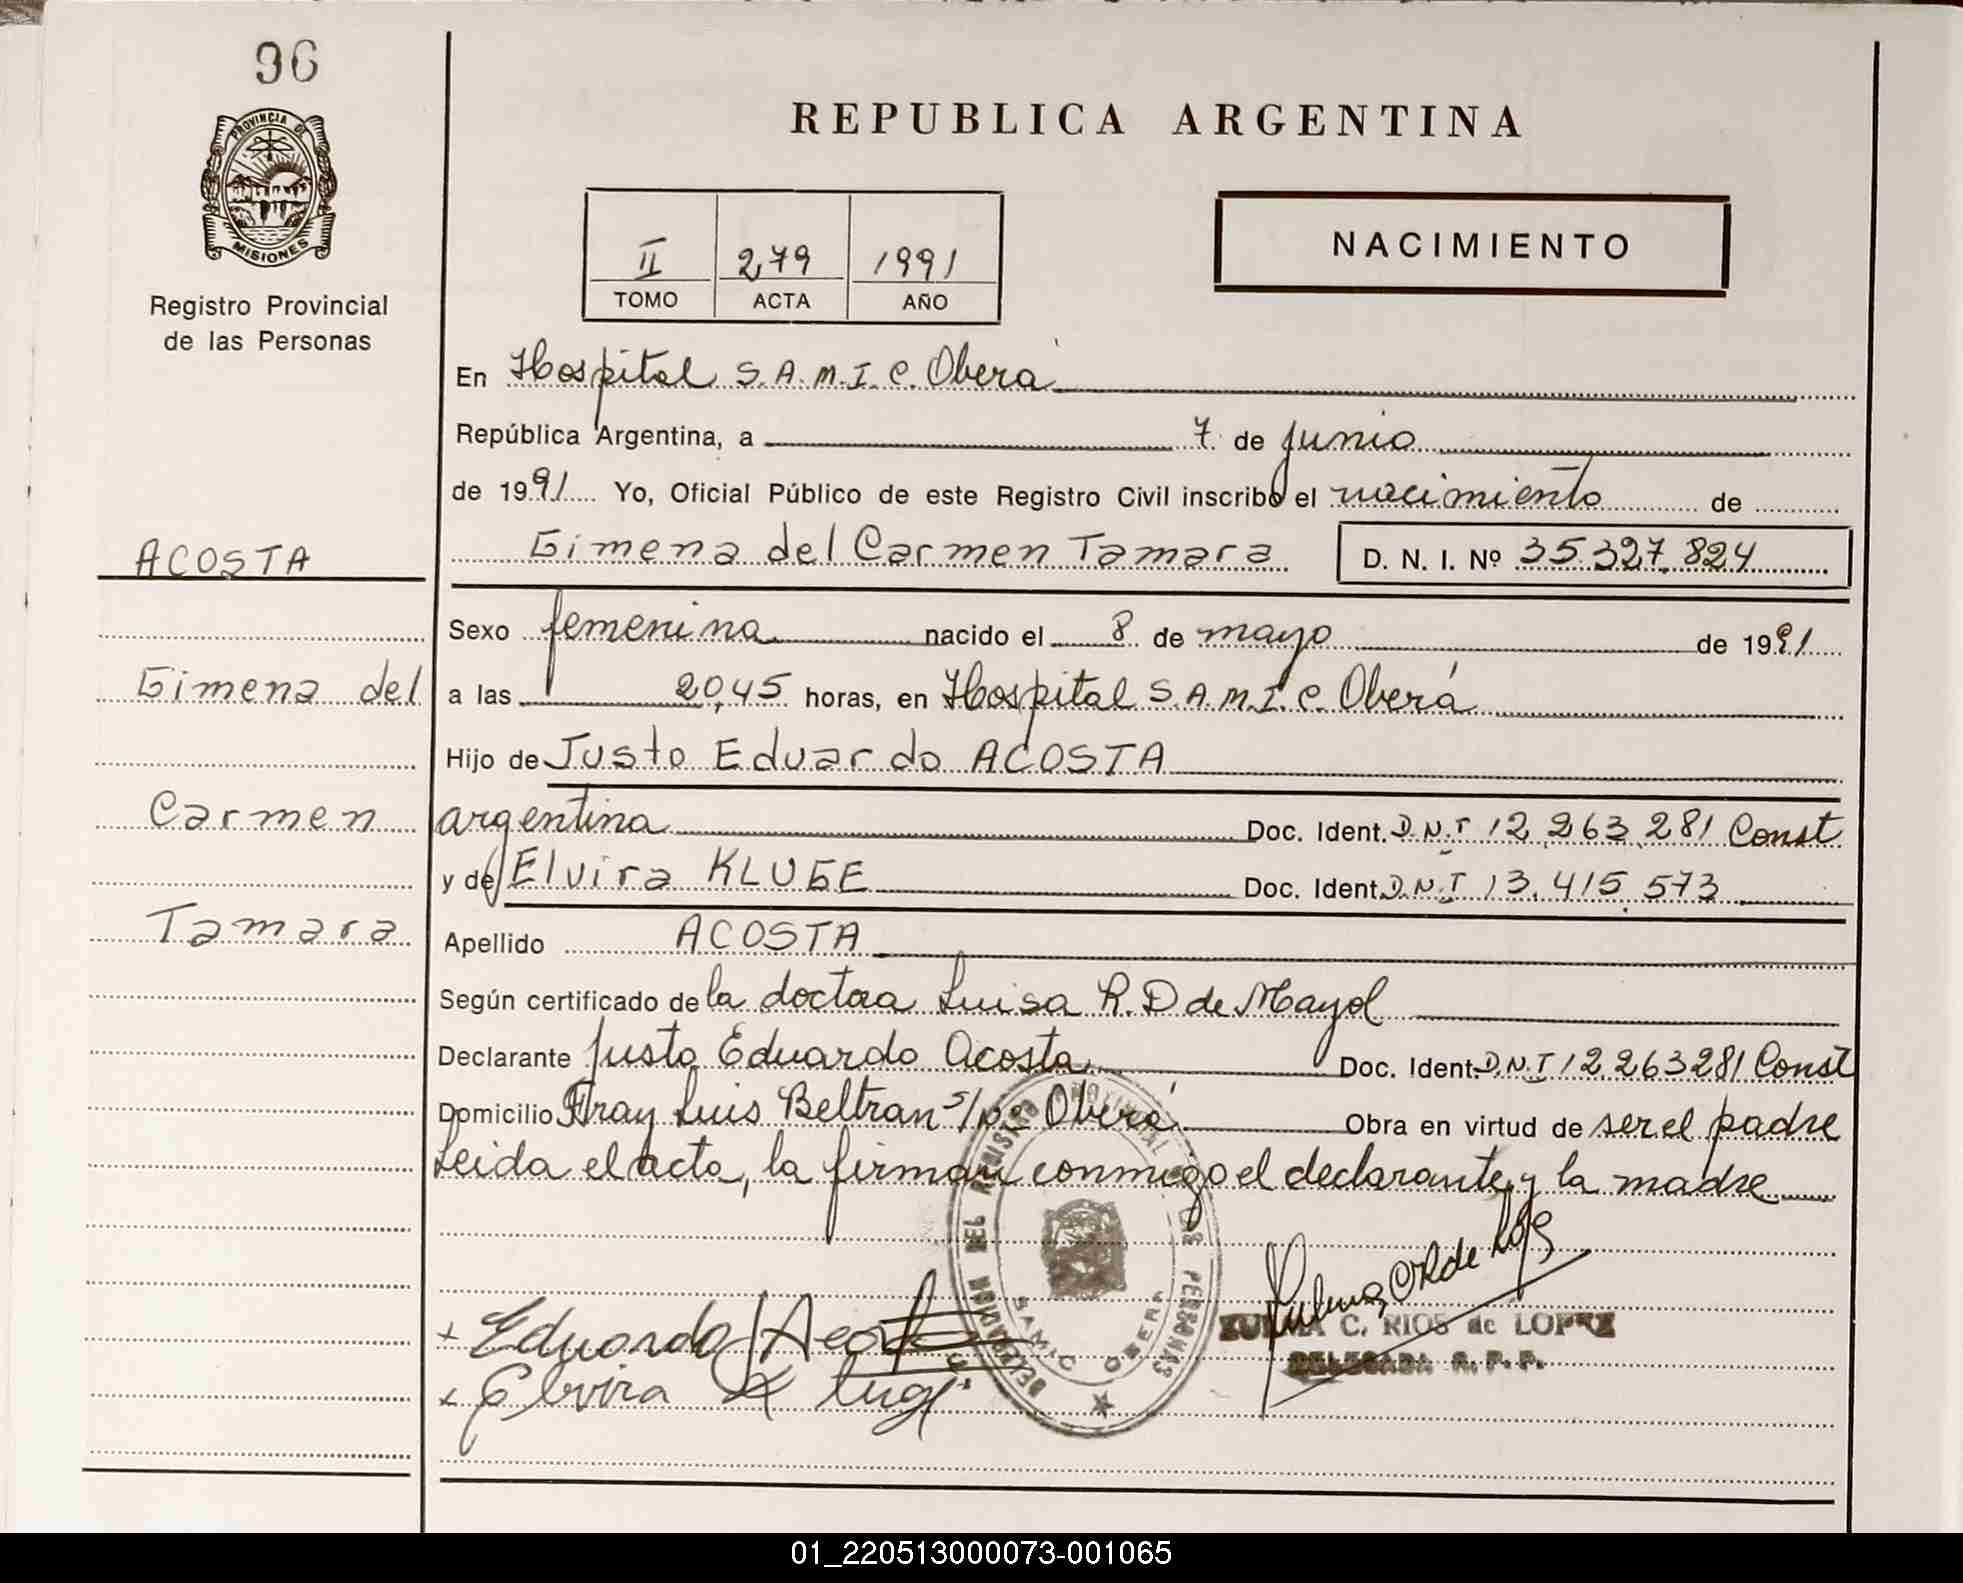 96
PROVINCIA DE
MISIONES
Registro Provincial
de las Personas
ACOSTA
Gimena del
Carmen
Tamara
REPUBLICA ARGENTINA
II 279 1991
TOMO ACTA AÑO
NACIMIENTO
En Hospital S.A.M.I.C. Oberá
República Argentina, a 7 de junio
de 1991 Yo, Oficial Público de este Registro Civil inscribo el nacimiento de
Gimena del Carmen Tamara D. N. I. Nº 35.327.824
Sexo femenina nacido el 8 de mayo de 1991
a las 20,45 horas, en Hospital S.A.M.I.C. Oberá
Hijo de Justo Eduardo ACOSTA
argentina Doc. Ident. D.N.I 12.263.281 Const
y de Elvira KLUGE Doc. Ident. D.N.I 13.415.573
Apellido ACOSTA
Según certificado de la doctora Luisa R. D de Mayol
Declarante Justo Eduardo Acosta Doc. Ident. D.N.I 12.263281 Const
Domicilio Fray Luis Beltran s/nº Oberá Obra en virtud de ser el padre
Leida el acta, la firman conmigo el declarante y la madre
+ Eduardo J Acosta
+ Elvira Kluge
DELEGACION DEL REGISTRO PROVINCIAL DE LAS PERSONAS
SAMIC OBERA
ZULMA C. RIOS de LOPEZ
DELEGADA R. P. P.
01_220513000073-001065